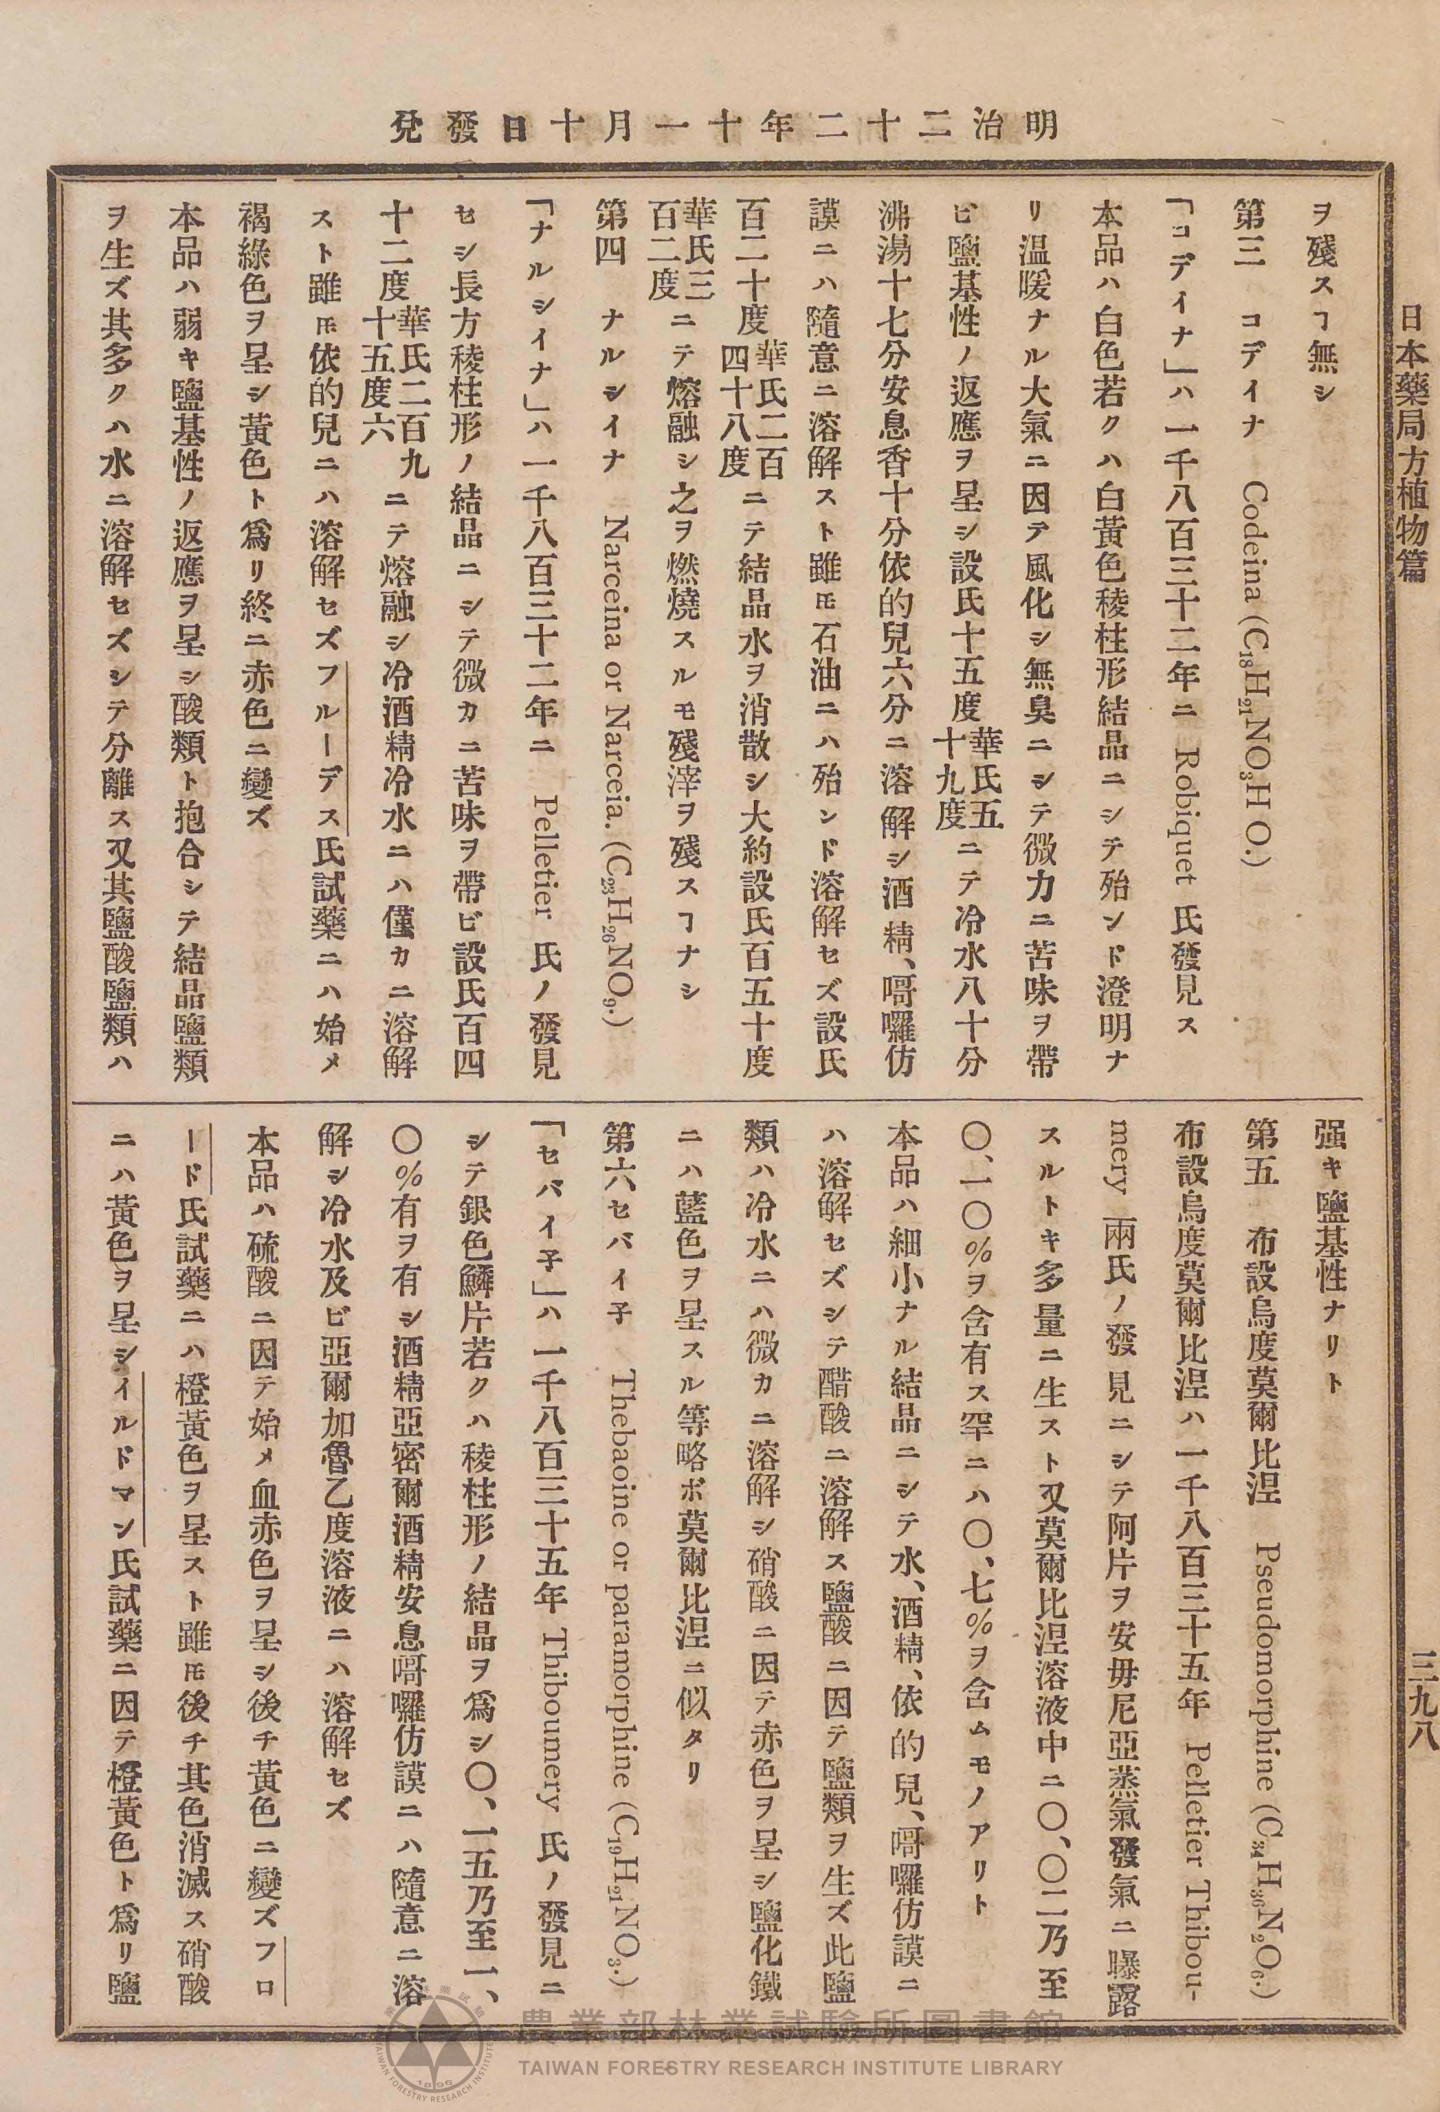 明治二十二年十一月十日發兌
日本藥局方植物篇
三九八
ヲ殘スヿ無シ
第三　コデイナ　Codeina (C18H21NO3H O.)
「コデイナ」ハ一千八百三十二年ニ Robiquet 氏發見ス
本品ハ白色若クハ白黃色稜柱形結晶ニシテ殆ンド澄明ナ
リ溫暖ナル大氣ニ因テ風化シ無臭ニシテ微力ニ苦味ヲ帶
ビ鹽基性ノ返應ヲ呈シ設氏十五度華氏五十九度ニテ冷水八十分
沸湯十七分安息香十分依的兒六分ニ溶解シ酒精、哥囉仿
謨ニハ隨意ニ溶解スト雖𪜈石油ニハ殆ンド溶解セズ設氏
百二十度華氏二百四十八度ニテ結晶水ヲ消散シ大約設氏百五十度
華氏三百二度ニテ熔融シ之ヲ燃燒スルモ殘滓ヲ殘スヿナシ
第四　ナルシイナ　Narceina or Narceia. (C23H26NO9.)
「ナルシイナ」ハ一千八百三十二年ニ Pelletier 氏ノ發見
セシ長方稜柱形ノ結晶ニシテ微カニ苦味ヲ帶ビ設氏百四
十二度華氏二百九十五度六ニテ熔融シ冷酒精冷水ニハ僅カニ溶解
スト雖𪜈依的兒ニハ溶解セズフルーデス氏試藥ニハ始メ
褐綠色ヲ呈シ黃色ト爲リ終ニ赤色ニ變ズ
本品ハ弱キ鹽基性ノ返應ヲ呈シ酸類ト抱合シテ結晶鹽類
ヲ生ズ其多クハ水ニ溶解セズシテ分離ス又其鹽酸鹽類ハ
强キ鹽基性ナリト
第五　布設烏度莫爾比涅　Pseudomorphine (C34H36N2O6.)
布設烏度莫爾比涅ハ一千八百三十五年 Pelletier Thibou-
mery 兩氏ノ發見ニシテ阿片ヲ安毋尼亞蒸氣發氣ニ曝露
スルトキ多量ニ生スト又莫爾比涅溶液中ニ〇、〇二乃至
〇、一〇%ヲ含有ス罕ニハ〇、七%ヲ含ムモノアリト
本品ハ細小ナル結晶ニシテ水、酒精、依的兒、哥囉仿謨ニ
ハ溶解セズシテ醋酸ニ溶解ス鹽酸ニ因テ鹽類ヲ生ズ此鹽
類ハ冷水ニハ微カニ溶解シ硝酸ニ因テ赤色ヲ呈シ鹽化鐵
ニハ藍色ヲ呈スル等略ボ莫爾比涅ニ似タリ
第六セバイ子　Thebaoine or paramorphine (C19H21NO3.)
「セバイ子」ハ一千八百三十五年 Thiboumery 氏ノ發見ニ
シテ銀色鱗片若クハ稜柱形ノ結晶ヲ爲シ〇、一五乃至一、
〇%有ヲ有シ酒精亞密爾酒精安息哥囉仿謨ニハ隨意ニ溶
解シ冷水及ビ亞爾加魯乙度溶液ニハ溶解セズ
本品ハ硫酸ニ因テ始メ血赤色ヲ呈シ後チ黃色ニ變ズフロ
ード氏試藥ニハ橙黃色ヲ呈スト雖𪜈後チ其色消滅ス硝酸
ニハ黃色ヲ呈シイルドマン氏試藥ニ因テ橙黃色ト爲リ鹽
農業部林業試驗所圖書館
TAIWAN FORESTRY RESEARCH INSTITUTE LIBRARY